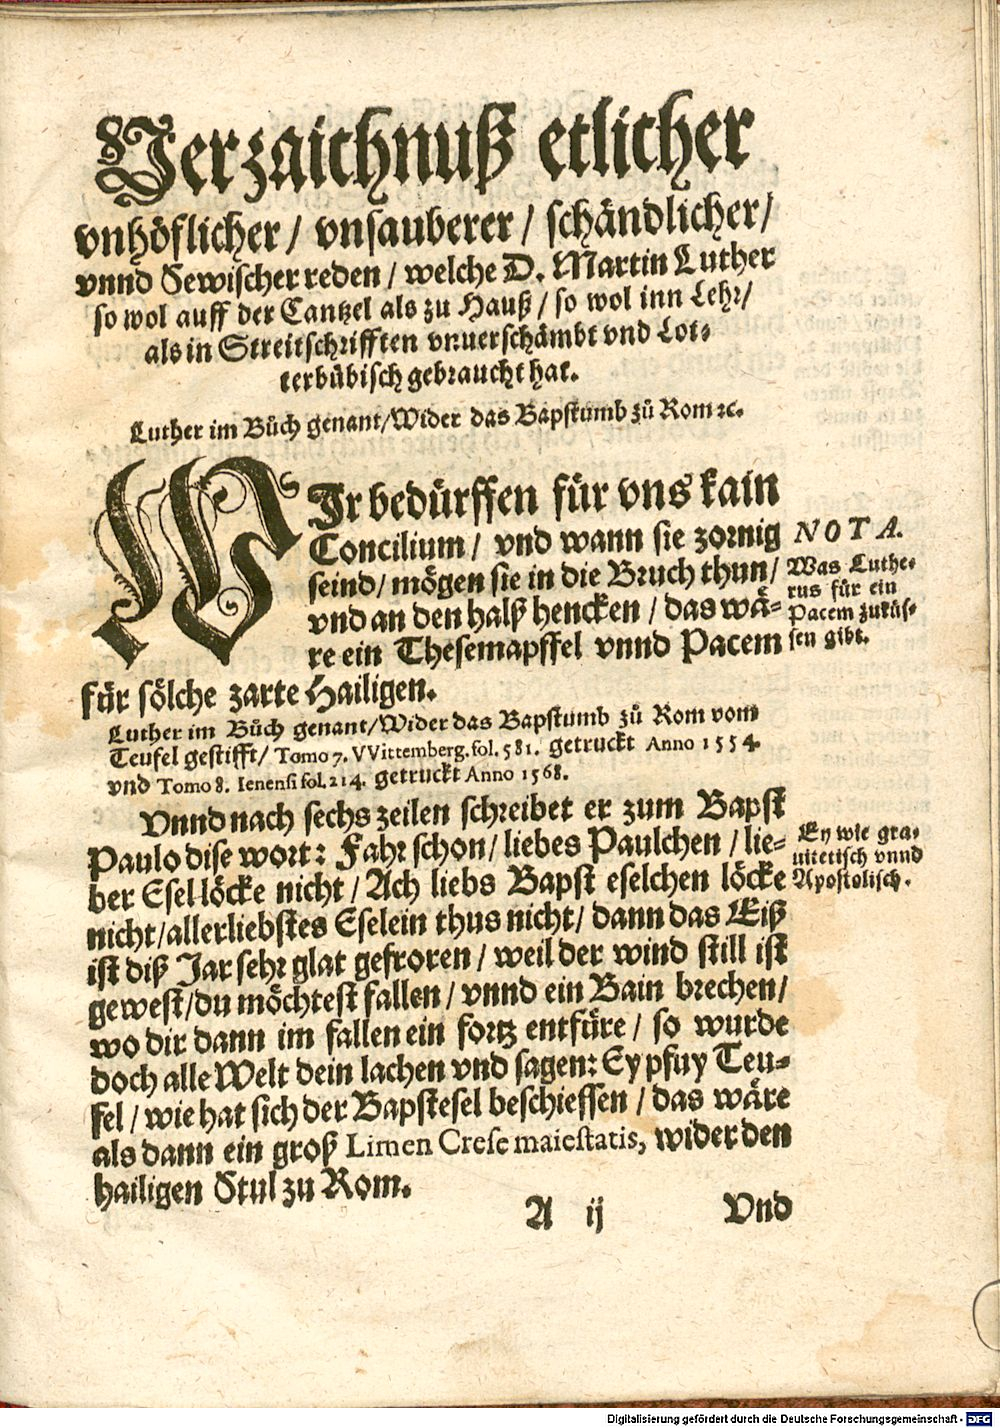 Verzaichnuß etlicher
vnhöflicher/ vnsauberer/ schändlicher/
vnnd Sewischer reden/ welche D. Martin Luther
so wol auff der Cantzel als zu Hauß/ so wol inn Lehr/
als in Streitschrifften vnuerschämbt vnd Lot-
terbübisch gebraucht hat.
Luther im Bůch genant/Wider das Bapstumb zů Rom ꝛc.
WIr bedürffen für vns kain
Concilium/ vnd wann sie zornig
seind/ mögen sie in die Bruch thun/
vnd an den halß hencken/ das wä-
re ein Thesemapffel vnnd Pacem
für sölche zarte Hailigen.
NOTA.
Was Luthe-
rus für ein
Pacem zuküs-
sen gibt.
Luther im Bůch genant/Wider das Bapstumb zů Rom vom
Teufel gestifft/ Tomo 7. VVittemberg. fol. 581. getruckt Anno 1554.
vnd Tomo 8. Ienensi fol. 214. getruckt Anno 1568.
Vnnd nach sechs zeilen schreibet er zum Bapst
Paulo dise wort: Fahr schon/ liebes Paulchen/ lie-
ber Esel löcke nicht/ Ach liebs Bapst eselchen löcke
nicht/allerliebstes Eselein thus nicht/ dann das Eiß
ist diß Jar sehr glat gefroren/ weil der wind still ist
gewest/du möchtest fallen/ vnnd ein Bain brechen/
wo dir dann im fallen ein fortz entfüre/ so wurde
doch alle Welt dein lachen vnd sagen: Ey pfuy Teu-
fel/ wie hat sich der Bapstesel beschiessen/ das wäre
als dann ein groß Limen Crese maiestatis, wider den
hailigen Stul zu Rom.
Ey wie gra-
uitetisch vnnd
Apostolisch.
A ij Vnd
Digitalisierung gefördert durch die Deutsche Forschungsgemeinschaft - DFG